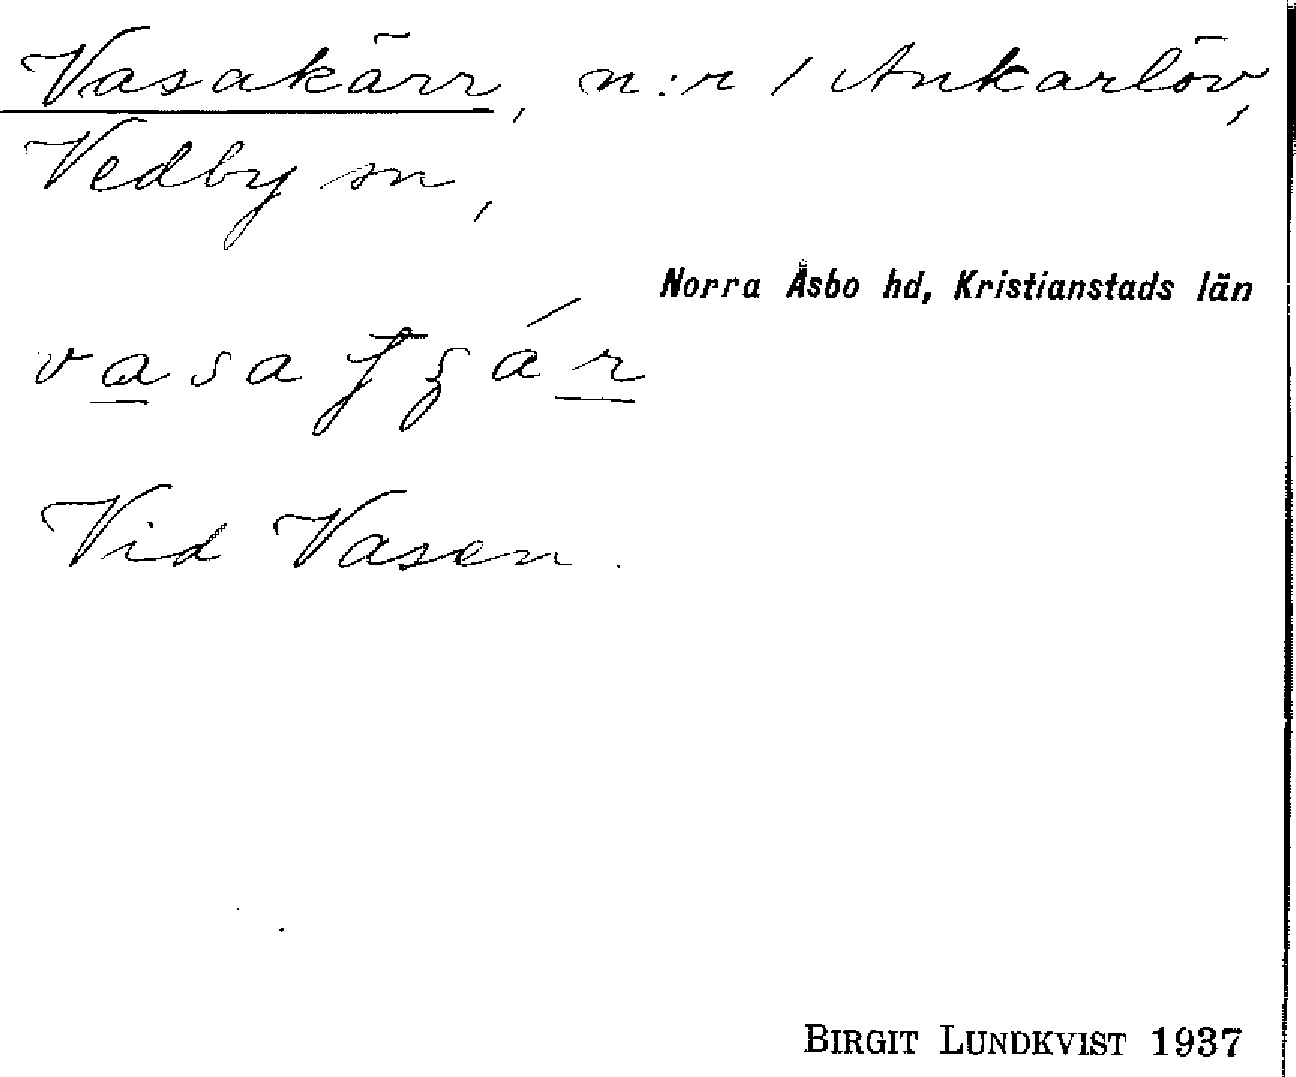 Vasakärr, n:r 1 Ankarlöv,
Vedby sn,
Norra Åsbo hd, Kristianstads län
Vid Vasen.
BIRGIT LUNDKVIST 1937